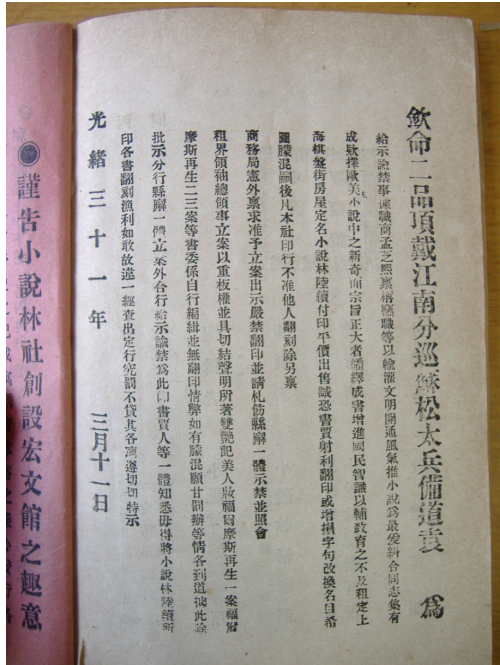 欽命二品頂戴江南分巡蘇松太兵備道袁　為
給示諭禁事據職商孟芝熙稟稱竊職等以輸灌文明開通風氣推小說為最爰糾合同志集有
成欵擇歐美小說中之新奇而宗旨正大者繙繹成書增進國民智識以輔敎育之不及租定上
海棋盤街房屋定名小說林陸續付印平價出售誠恐書賈射利翻印或增損字句改換名目希
圖朦混嗣後凡本社印行不准他人翻刻除另稟
商務局憲外稟求准予立案出示嚴禁翻印並請札飭縣廨一體示禁並照會
租界領袖總領事立案以重板權並具切結聲明所著雙艷記美人妝福爾摩斯再生一案福爾
摩斯再生二三案等書委係自行編緝並無翻印情弊如有朦混願甘罰辦等情各到道據此除
批示分行縣廨一體立案外合行給示諭禁為此仰書賈人等一體知悉毋得將小說林陸續所
印各書翻刻漁利如敢故違一經查出定行究罰不貸其各凜遵切切特示
光緒三十一年　三月十一日
謹告小說林社創設宏文館之趣意